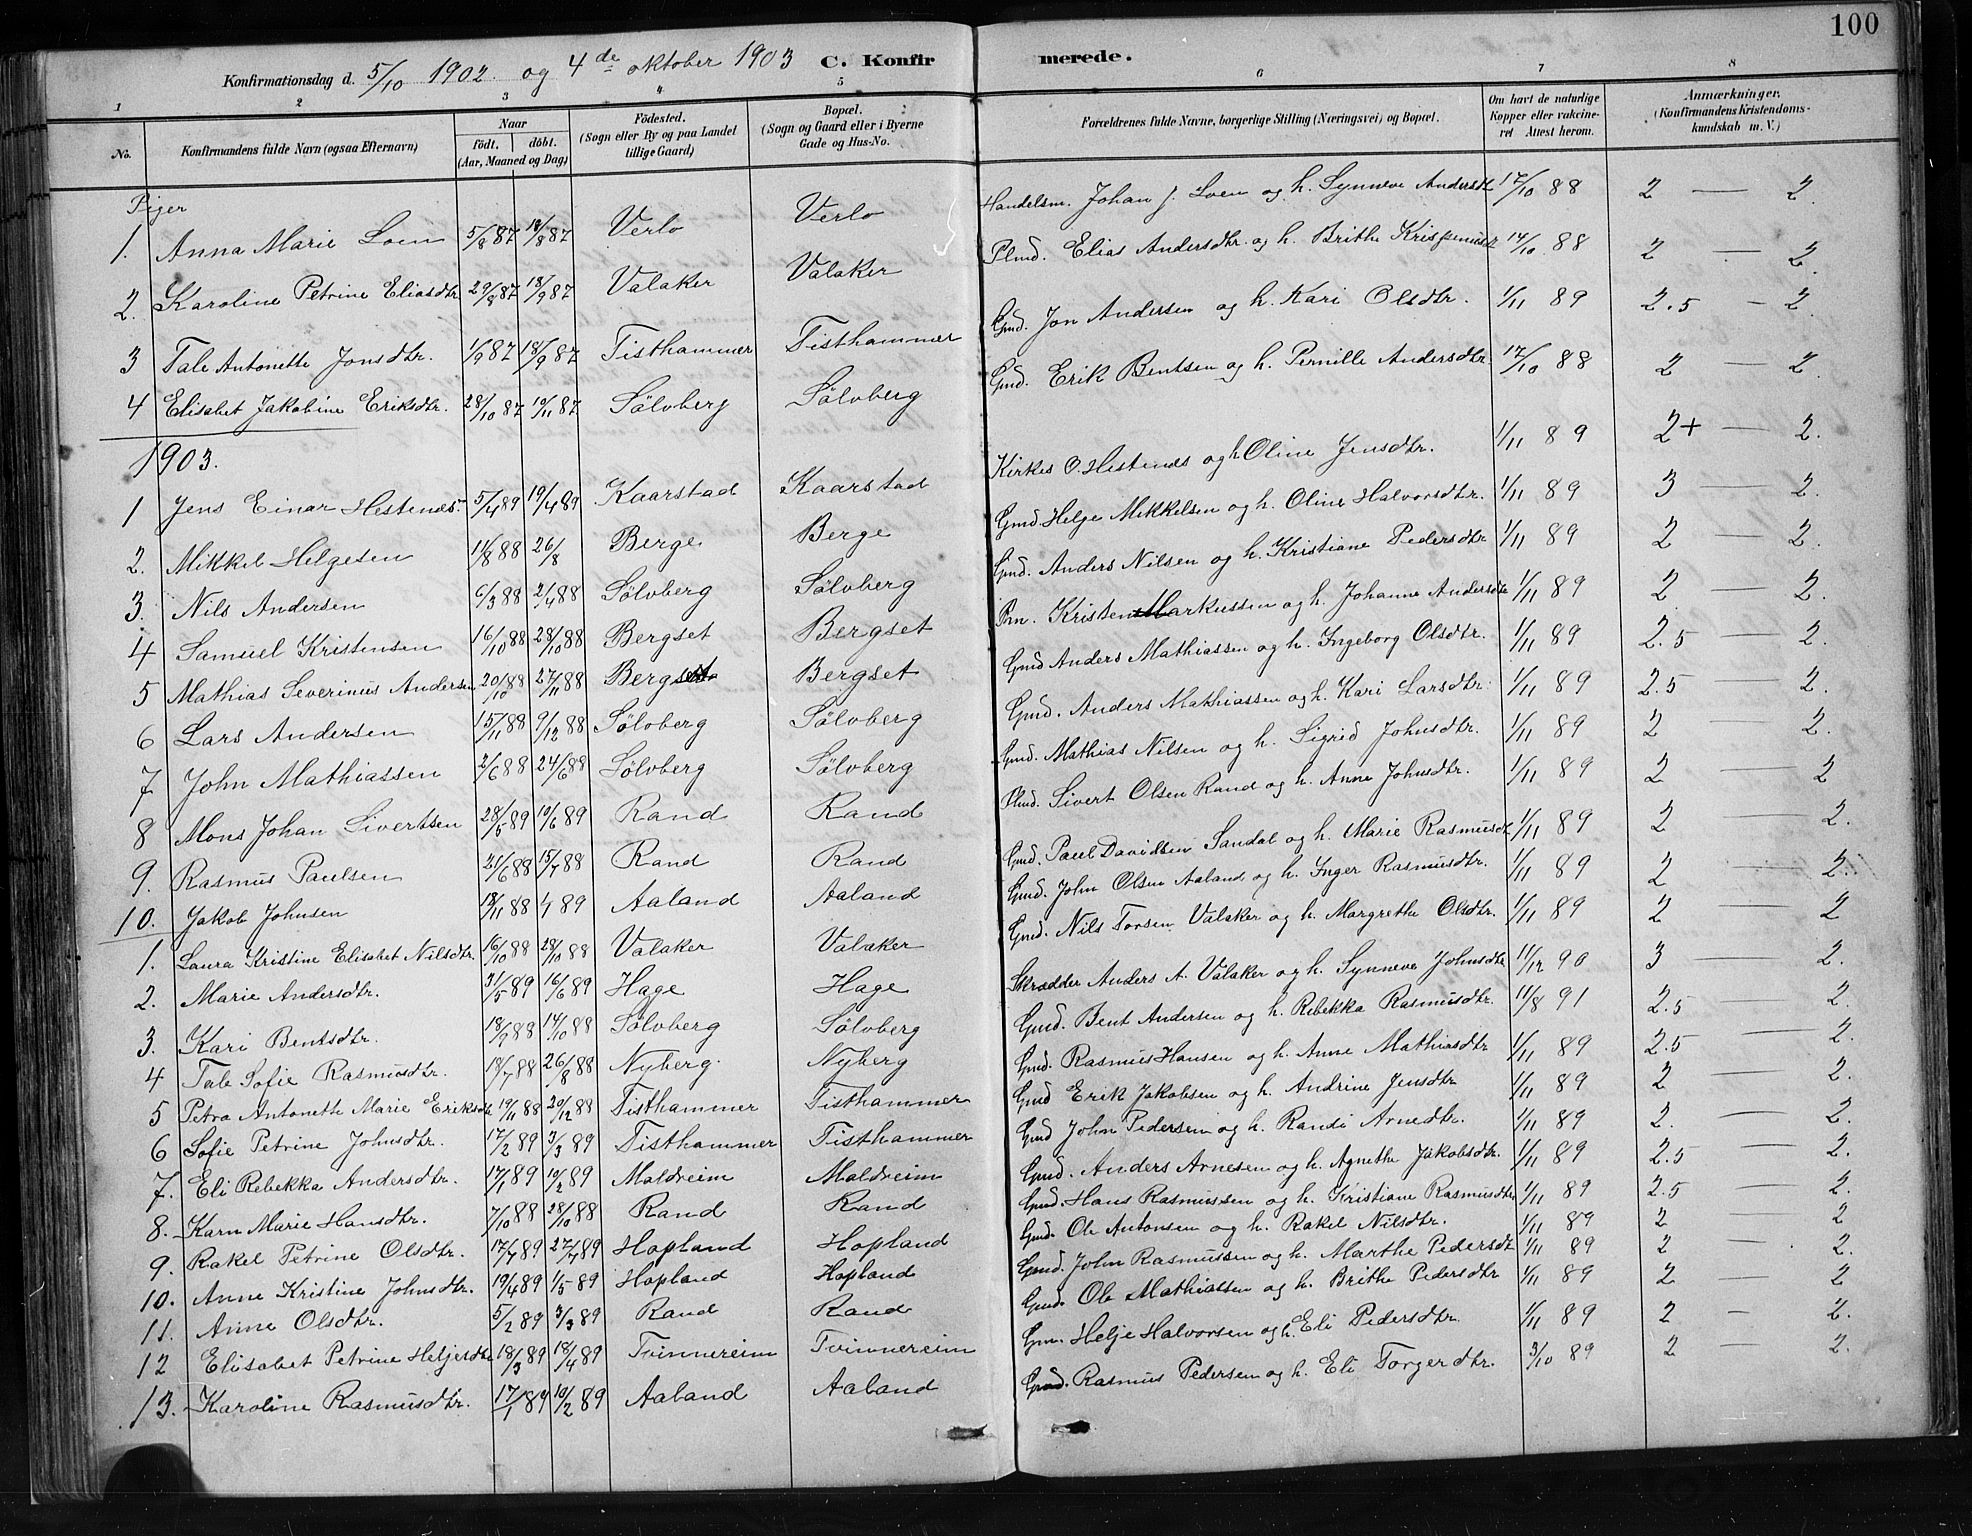 100
Konfirmationsdag d. 5/10 1902 og 4de oktober 1903 C. Konfirmerede.
1 2 3 4 5 6 7 8
No. Konfirmandens fulde Navn (ogsaa Efternavn) Naar födt. döbt. (Aar, Maaned og Dag) Födested. (Sogn eller By og paa Landet tillige Gaard) Bopæl. (Sogn og Gaard eller i Byerne Gade og Hus-No. Forældrenes fulde Navne, borgerlige Stilling (Næringsvei) og Bopæl. Om havt de naturlige Kopper eller vakcineret Attest herom. Anmærkninger. (Konfirmandens Kristendomskundskab m. V.)
Piger
1. Anna Marie Loen 5/8 87 Verlo Verlo Handelsm. Johan J. Loen og h. Synneve Andersdtr 17/10 88 2 — 2.
2. Karoline Petrine Eliasdtr. 29/8 87 18/9 87 Valaker Valaker Plmd. Elias Andersdtr. og h. Brithe 88 2 — 2.
3 Tale Antonette Jonsdtr. 1/9 87 18/9 87 Tisthammer Tisthammer Gmd. Jon Andersen og h. Kari Olsdtr. 1/11 89 2.5 – 2.
4 Elisabet Jakobine Eriksdtr. 28/10 87 87 Sölvberg Sölvberg Gmd. Erik Bentsen og h. Pernille Andersdtr 17/10 88 2 — 2.
1903.
1 Jens Einar Hestenæs 5/4 89 19/4 89 Kaarstad Kaarstad Kirkes. O. Hestenes og h Oline Jensdtr. 1/11 89 2+ — 2.
2. Mikkel Helgesen 11/8 88 26/8 Berge Berge Gmd. Helge Mikkelsen og h. Oline Halvorsdtr. 1/11 89 3 — 2.
3. Nils Andersen 6/3 88 2/4 88 Sölvberg Sölvberg Gmd. Anders Nilsen og h. Kristiane Pedersdtr 1/11 89 2 — 2.
4 Samuel Kristensen 16/10 88 28/10 88 Bergset Bergset Kristen Markussen og h. Johanne Andersdtr 1/11 89 2 — 2.
5 Mathias Severinus Andersen 20/10 88 27/11 88 Bergset Bergset Gmd Anders Mathiassen og h. Ingeborg Olsdtr. 1/11 89 2.5 — 2.
6 Lars Andersen 15/11 88 9/12 88 Sölvberg Sölvberg Gmd. Anders Mathiassen og h. Kari Larsdtr. 1/11 89 2.5 — 2.
7 John Mathiassen 2/6 88 24/6 88 Sölvberg Sölvberg Gmd. Mathias Nilsen og h. Sigrid Johnsdtr. 1/11 89 2 — 2.
8 Mons Johan Sivertsen 28/5 89 10/6 89 Rand Rand Plmd. Sivert Olsen Rand og h. Anne Johnsdtr. 1/11 89 2 — 2
9. Rasmus Paulsen 21/6 88 15/7 88 Rand Rand Gmd. Paul Davidsen Sandal og h. Marie Rasmusdtr 1/11 89 2 — 2.
10. Jakob Johnsen 18/11 88 89 Aaland Aaland Gmd. John Olsen Aaland og h. Inger Rasmusdtr. 1/11 89 2 — 2.
1. Laura Kristine Elisabet Nilsdtr. 16/10 88 28/10 88 Valaker Valaker Gmd. Nils Torsen Valaker og h. Margrethe Olsdtr. 1/11 89 2 — 2
2. Marie Andersdtr. 31/5 89 16/6 89 Hage Hage Skrædder Anders A. Valaker og h. Synneve Johnsdtr 11/12 90 3 — 2.
3. Kari Bentsdtr. 18/9 88 14/10 88 Sölvberg Sölvberg Gmd. Bent Andersen og h. Rebekka Rasmusdtr. 11/8 91 2.5 — 2.
4 Tale Sofie Rasmusdtr. 19/7 88 26/8 88 Nyberg. Nyberg Gmd. Rasmus Hansen og h. Anne Mathiasdtr 1/11 89 2.5 — 2.
5 Petra Antoneth Marie Eriksdtr 19/11 88 20/12 88 Tisthammer Tisthammer Gmd Erik Jakobsen og h. Andrine Jensdtr 1/11 89 2 — 2.
6 Sofie Petrine Johnsdtr. 17/2 89 3/3 89 Tisthammer Tisthammer Gmd John Pedersen og h. Randi Arnedtr. 1/11 89 2. — 2.
7. Eli Rebekka Andersdtr. 17/1 89 10/2 89 Maldreim Maldreim Gmd. Anders Arnesen og h. Agnethe Jakobsdtr. 1/11 89 2.5 — 2.
8. Karn Marie Hansdtr. 7/10 88 28/10 88 Rand Rand Gmd. Hans Rasmussen og h. Kristiane Rasmusdtr 1/11 89 2.5 — 2.
9. Rakel Petrine Olsdtr. 17/7 89 27/7 89 Hopland Hopland Gmd. Ole Antonsen og h. Rakel Nilsdtr. 1/11 89 2 — 2
10. Anne Kristine Johnsdtr. 19/4 89 1/5 89 Hopland Hopland Gmd. John Rasmussen og h. Marthe Pedersdtr 1/11 89 2 — 2.
11. Anne Olsdtr. 5/2 89 3/3 89 Rand Rand Gmd. Ole Mathiassen og h. Brithe Pedersdtr 1/11 89 2 — 2
12 Elisabet Petrine Heljesdtr 18/3 89 18/4 89 Tvinnereim Tvinnereim Gm. Helje Halvorsen og h. Eli Pedersdtr. 1/11 89 2 — 2.
13. Karoline Rasmusdtr. 17/1 89 10/2 89 Aaland Aaland Gmd. Rasmus Pedersen og h. Eli Torgerdtr. 3/10 89 2 — 2.